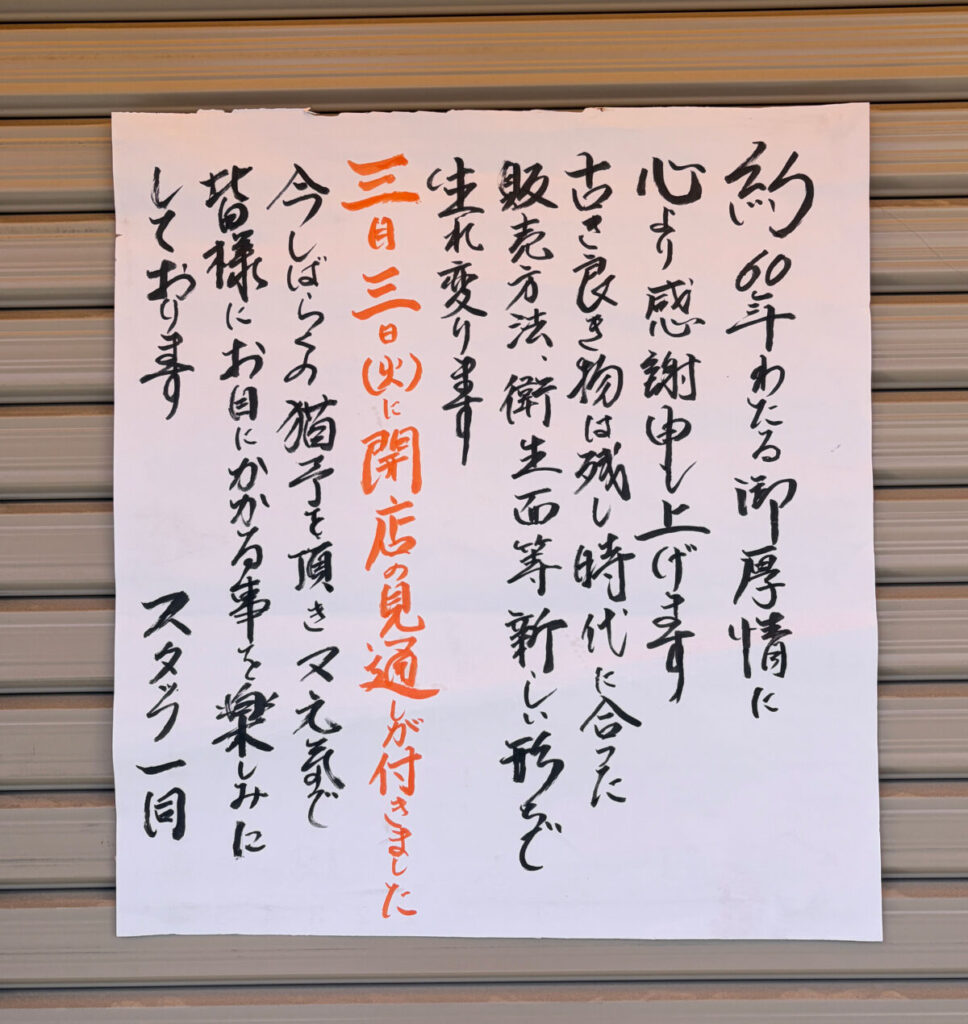 約60年わたる御厚情に
心より感謝申し上げます
古き良き物は残し時代に合った
販売方法、衛生面等新しい形など
生れ変ります
三月三日(火)に開店の見通しが付きました
今しばらくの猶予を頂き又元気で
皆様にお目にかかる事を楽しみに
しております
スタッフ一同